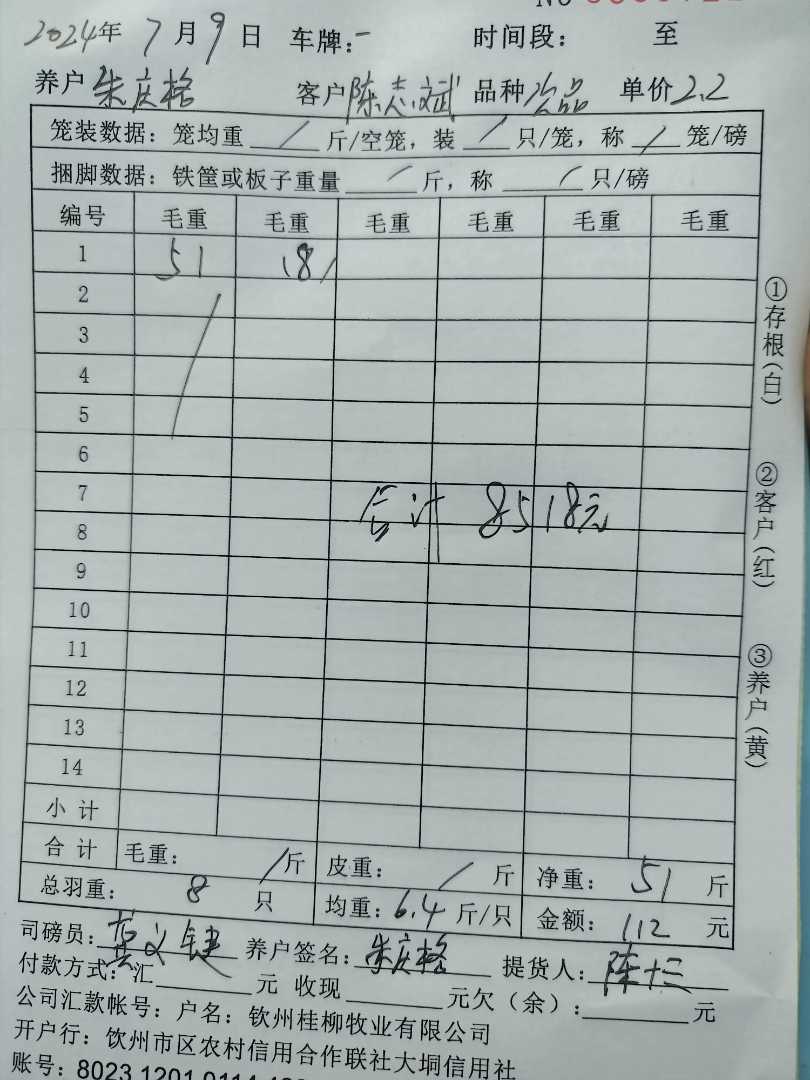 2024年 7 月 9 日 车牌:- 时间段: 至
养户 朱庆格 客户 陈志斌 品种 次品 单价 2.2
笼装数据: 笼均重 / 斤/空笼, 装 / 只/笼, 称 / 笼/磅
捆脚数据: 铁筐或板子重量 / 斤, 称 / 只/磅
编号 毛重 毛重 毛重 毛重 毛重 毛重
1 51 18/
2
3
4
5
6
7 合计 8518元
8
9
10
11
12
13
14
小 计
合 计 毛重: / 斤 皮重: / 斤 净重: 51 斤
总羽重: 8 只 均重: 6.4 斤/只 金额: 112 元
司磅员: 义健 养户签名: 朱庆格 提货人: 陈十三
付款方式: 汇 元 收现 元欠(余): 元
公司汇款帐号: 户名: 钦州桂柳牧业有限公司
开户行: 钦州市区农村信用合作联社大垌信用社
账号: 8023 1201 0114
①存根(白)
②客户(红)
③养户(黄)